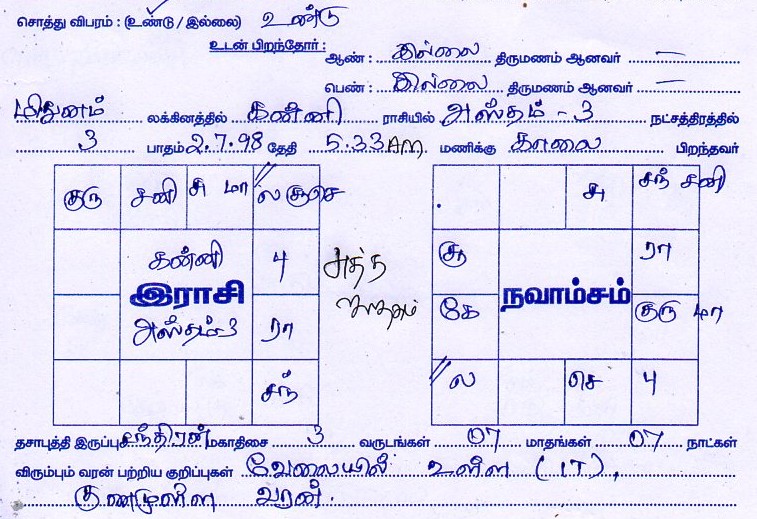 சொத்து விபரம் : (உண்டு / இல்லை) உண்டு
உடன் பிறந்தோர் : ஆண் : இல்லை திருமணம் ஆனவர் —
பெண் : இல்லை திருமணம் ஆனவர் —
மிதுனம் லக்கினத்தில் கன்னி ராசியில் அஸ்தம் - 3 நட்சத்திரத்தில்
3 பாதம் 2.7.98 தேதி 5.33 AM மணிக்கு காலை பிறந்தவர்
குரு சனி சு மா ல சூ செ
சு சந் சனி
கன்னி பு
சூ ரா
இராசி
நவாம்சம்
அஸ்தம் 3 ரா
கே குரு மா
சந்
ல செ பு
தசாபுத்தி இருப்பு சந்திரன் மகாதிசை 3 வருடங்கள் 07 மாதங்கள் 07 நாட்கள்
விரும்பும் வரன் பற்றிய குறிப்புகள் வேலையில் உள்ள (IT),
குணமுள்ள வரன்.